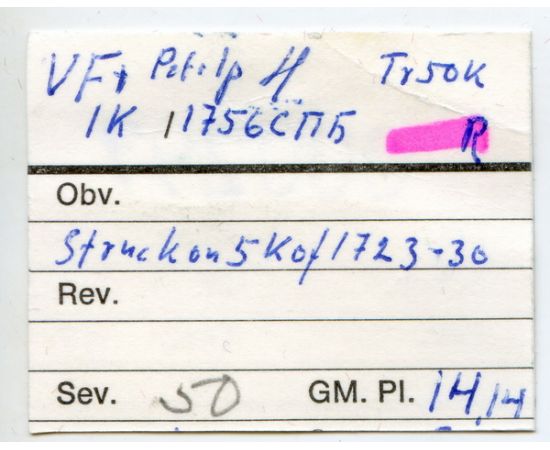 VF+ Tr50K
1K 1756СПБ R
Obv.
Struck on 5 Kof 1723-30
Rev.
Sev. 50 GM. Pl. 14,14